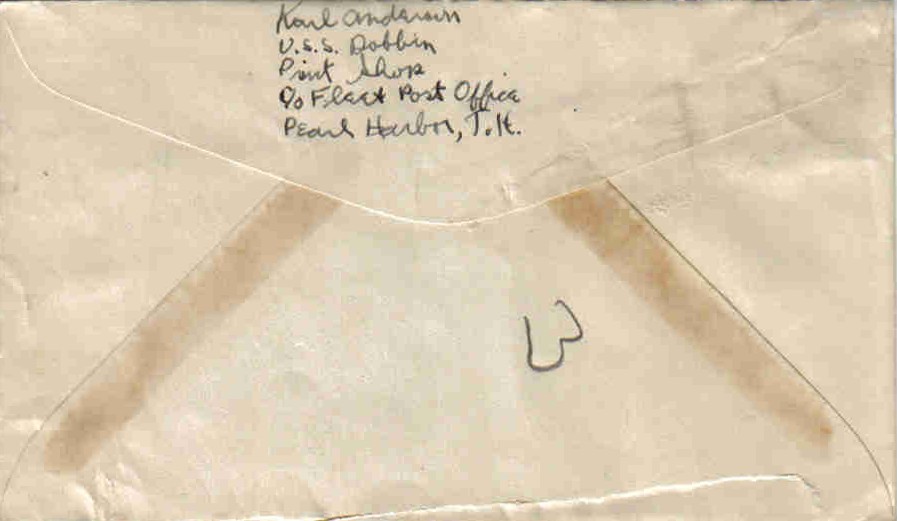 Karl Anderson
U.S.S. Dobbin
Print Shop
c/o Fleet Post Office
Pearl Harbor, T.H.